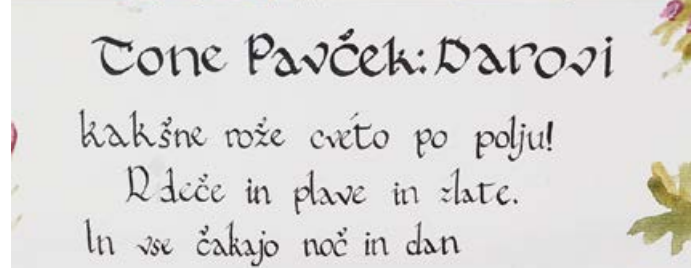 Tone Pavček: Darovi
kakšne rože cvetó po polju!
Rdeče in plave in zlate.
In vse čakajo noč in dan